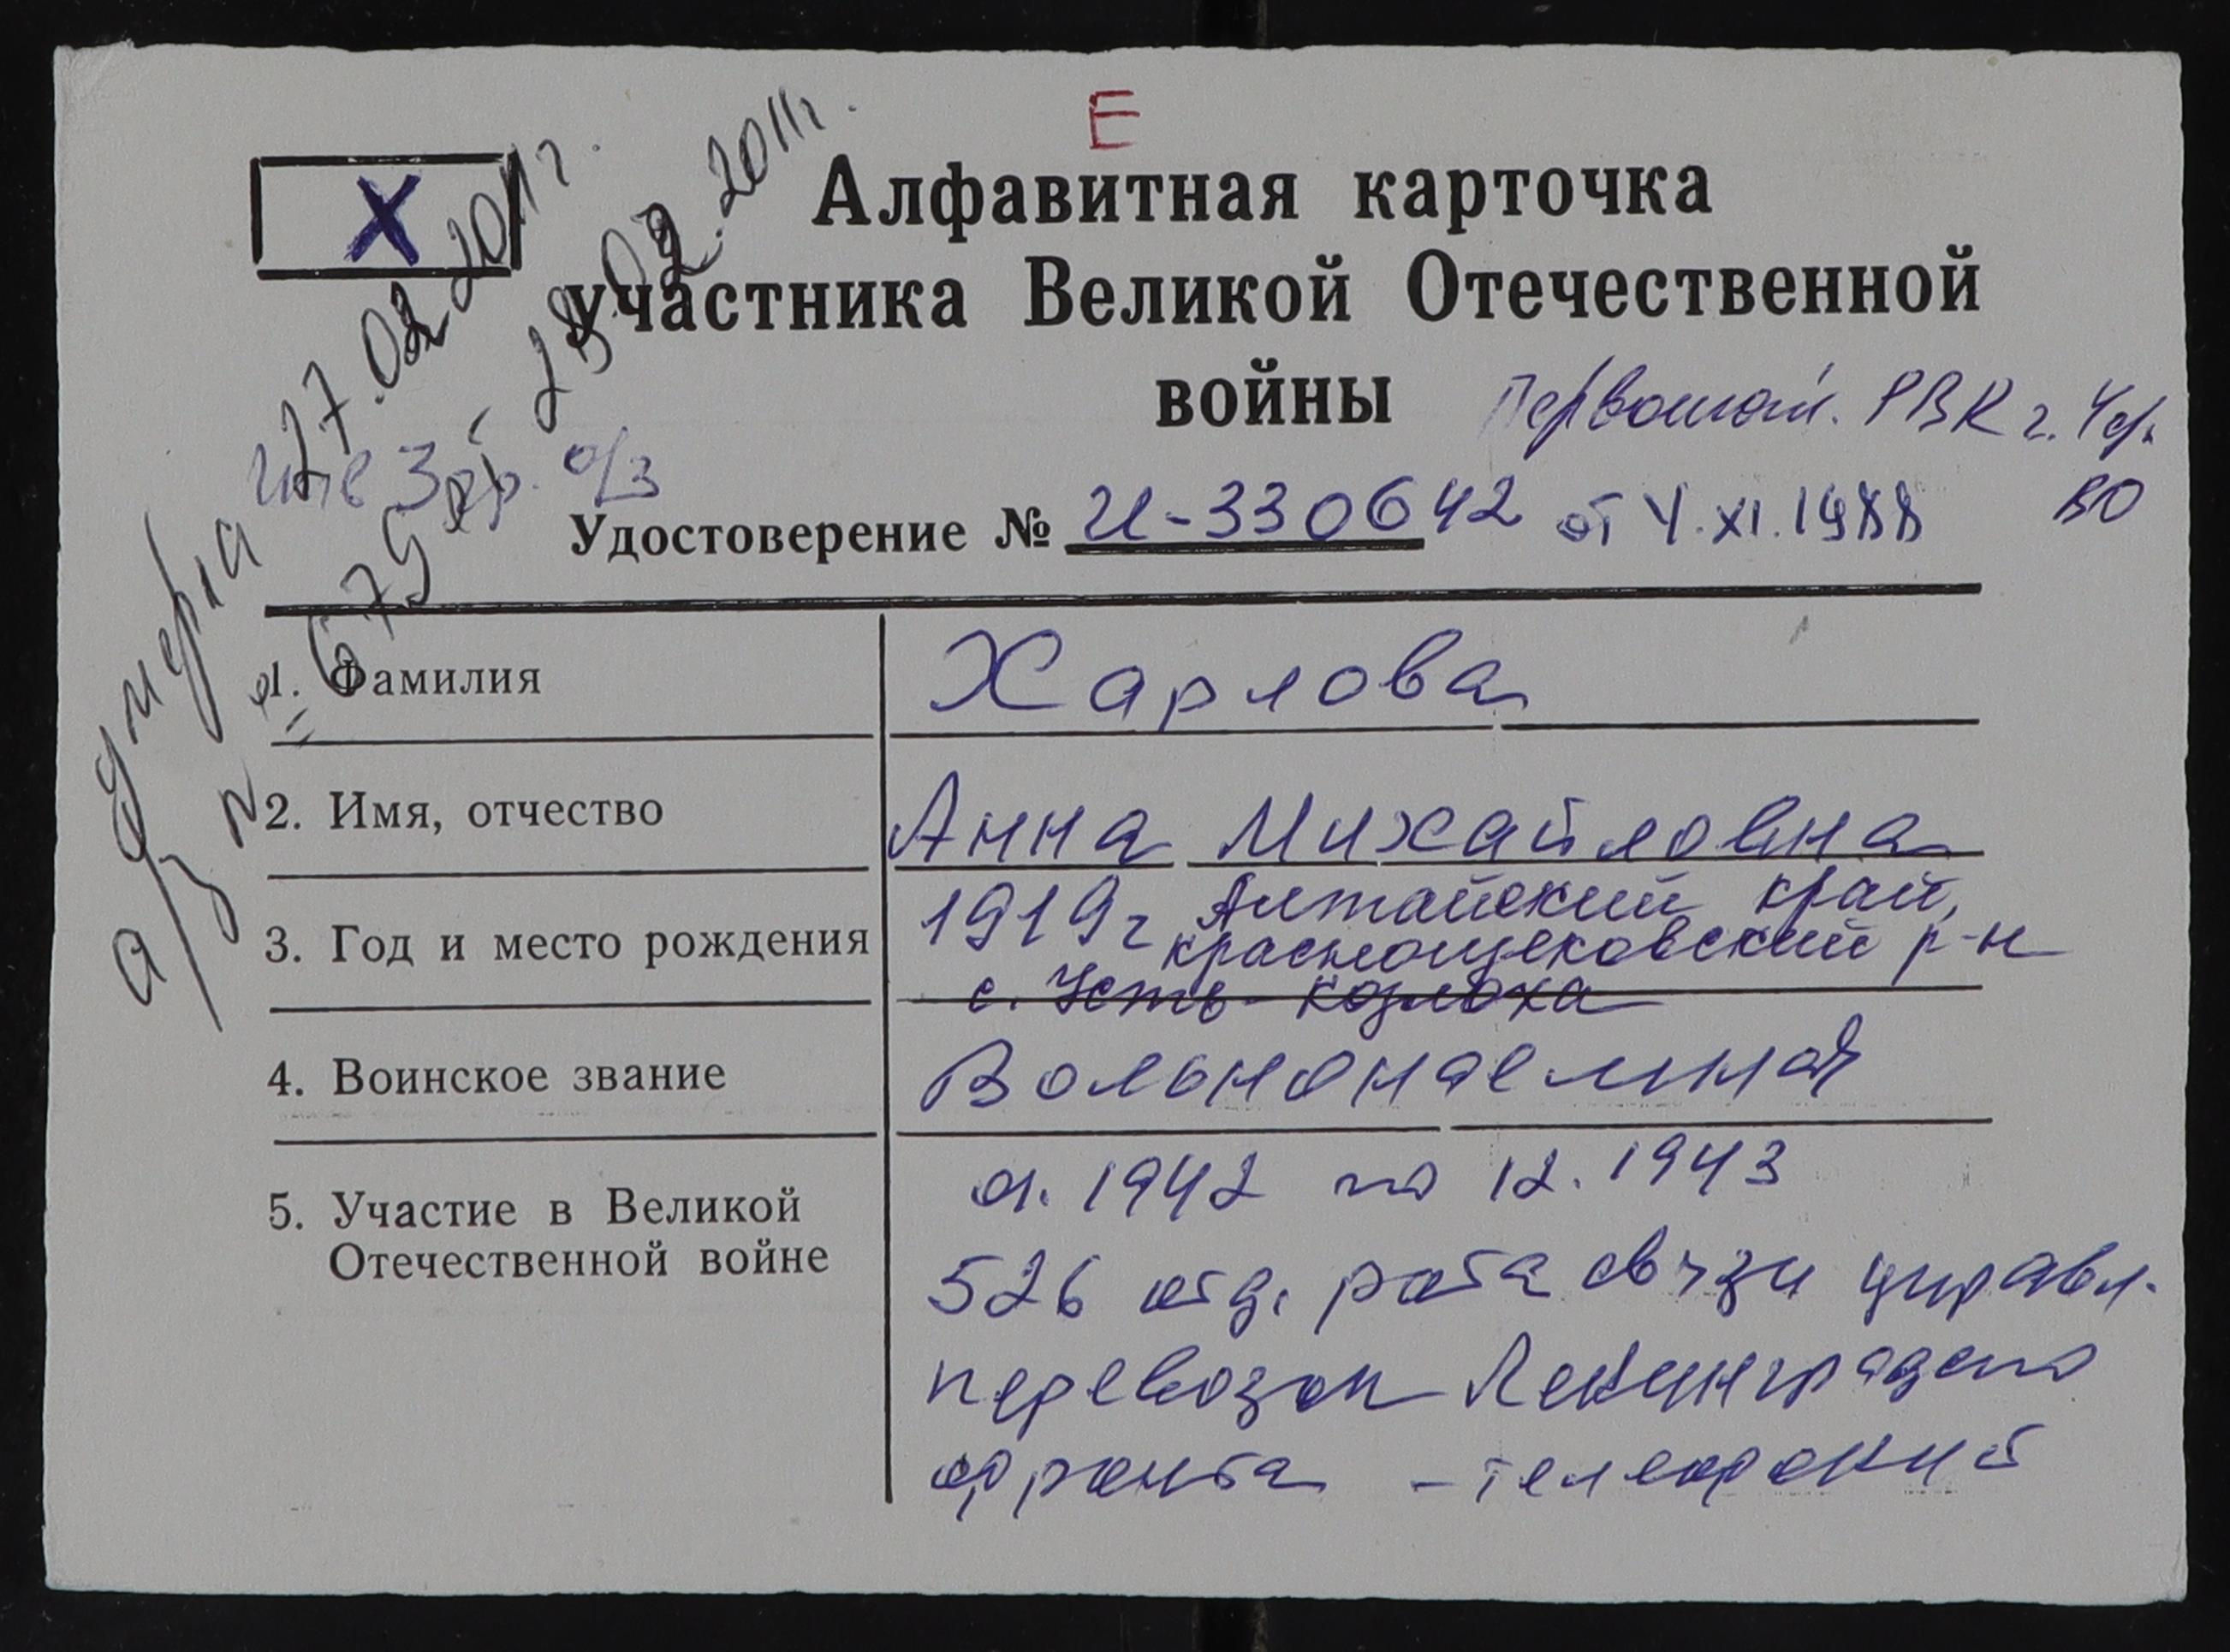 Е
Х
Алфавитная карточка
участника Великой Отечественной
войны
Первомай. РВК г.
ВО
Удостоверение № И-330642 от 4.XI.1988
умерла 27.02.2011г.
а/з № 679 от 28.02.2011г.
инв 3 гр. о/з
1. Фамилия
Харлова
2. Имя, отчество
Анна Михайловна
3. Год и место рождения
1919г Алтайский край,
краснощековский р-н
с. Усть-Козлоха
4. Воинское звание
Вольнонаемная
5. Участие в Великой
Отечественной войне
01.1942 по 12.1943
526 отд. рота связи управл.
перевозок Ленинградско
фронта - телефонис